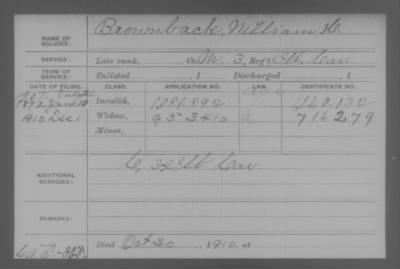 NAME OF SOLDIER: Brownback, William H.
SERVICE: Late rank, Co. M, 3, Reg't Ill. Cav.
TERM OF SERVICE: Enlisted , 1 Discharged , 1
DATE OF FILING. CLASS. APPLICATION NO. LAW. CERTIFICATE NO.
Invalid, 1081,892 440,132
1910 Dec 1 Widow, 953410 716279
Minor,
ADDITIONAL SERVICES: Ill Cav.
REMARKS:
Died Oct 30, 1910, at